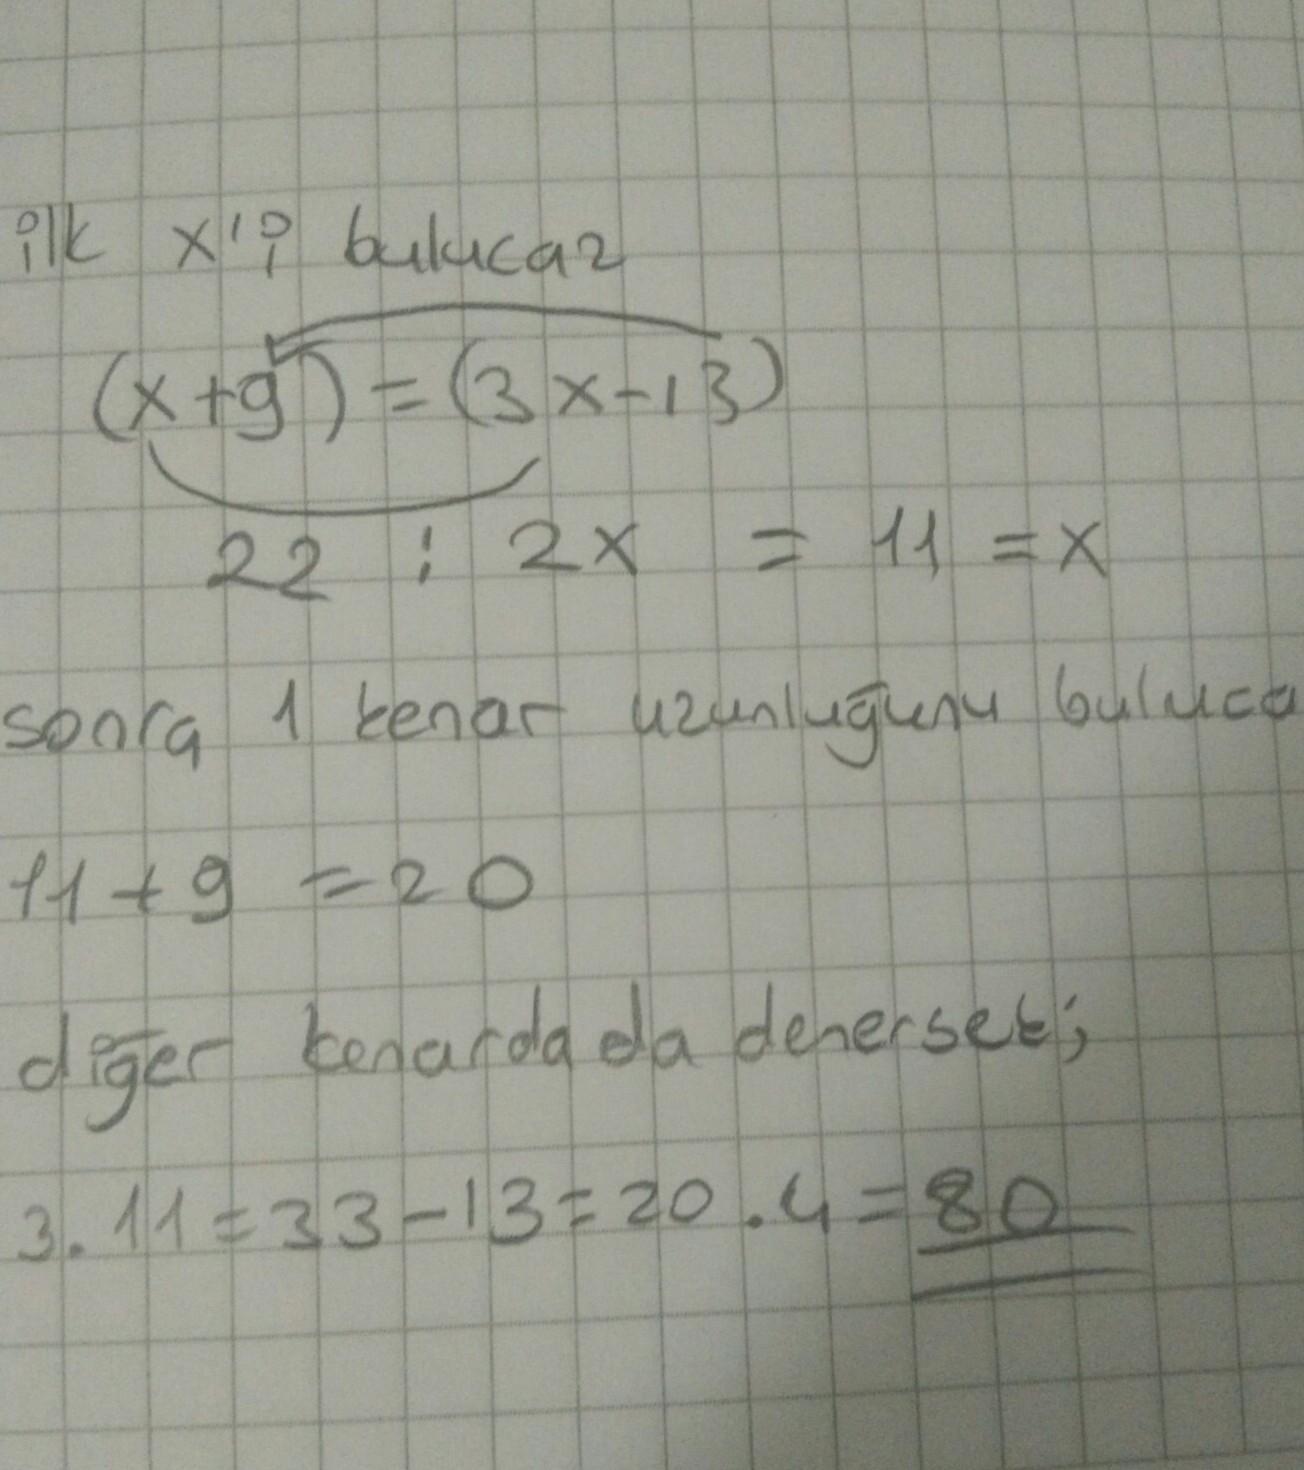 ilk x'i bulucaz
(x+9) = (3x-13)
22 : 2x = 11 = x
sonra 1 kenar uzunluğunu buluca
11 + 9 = 20
diğer kenarda da denersek;
3. 11 = 33 - 13 = 20 . 4 = 80